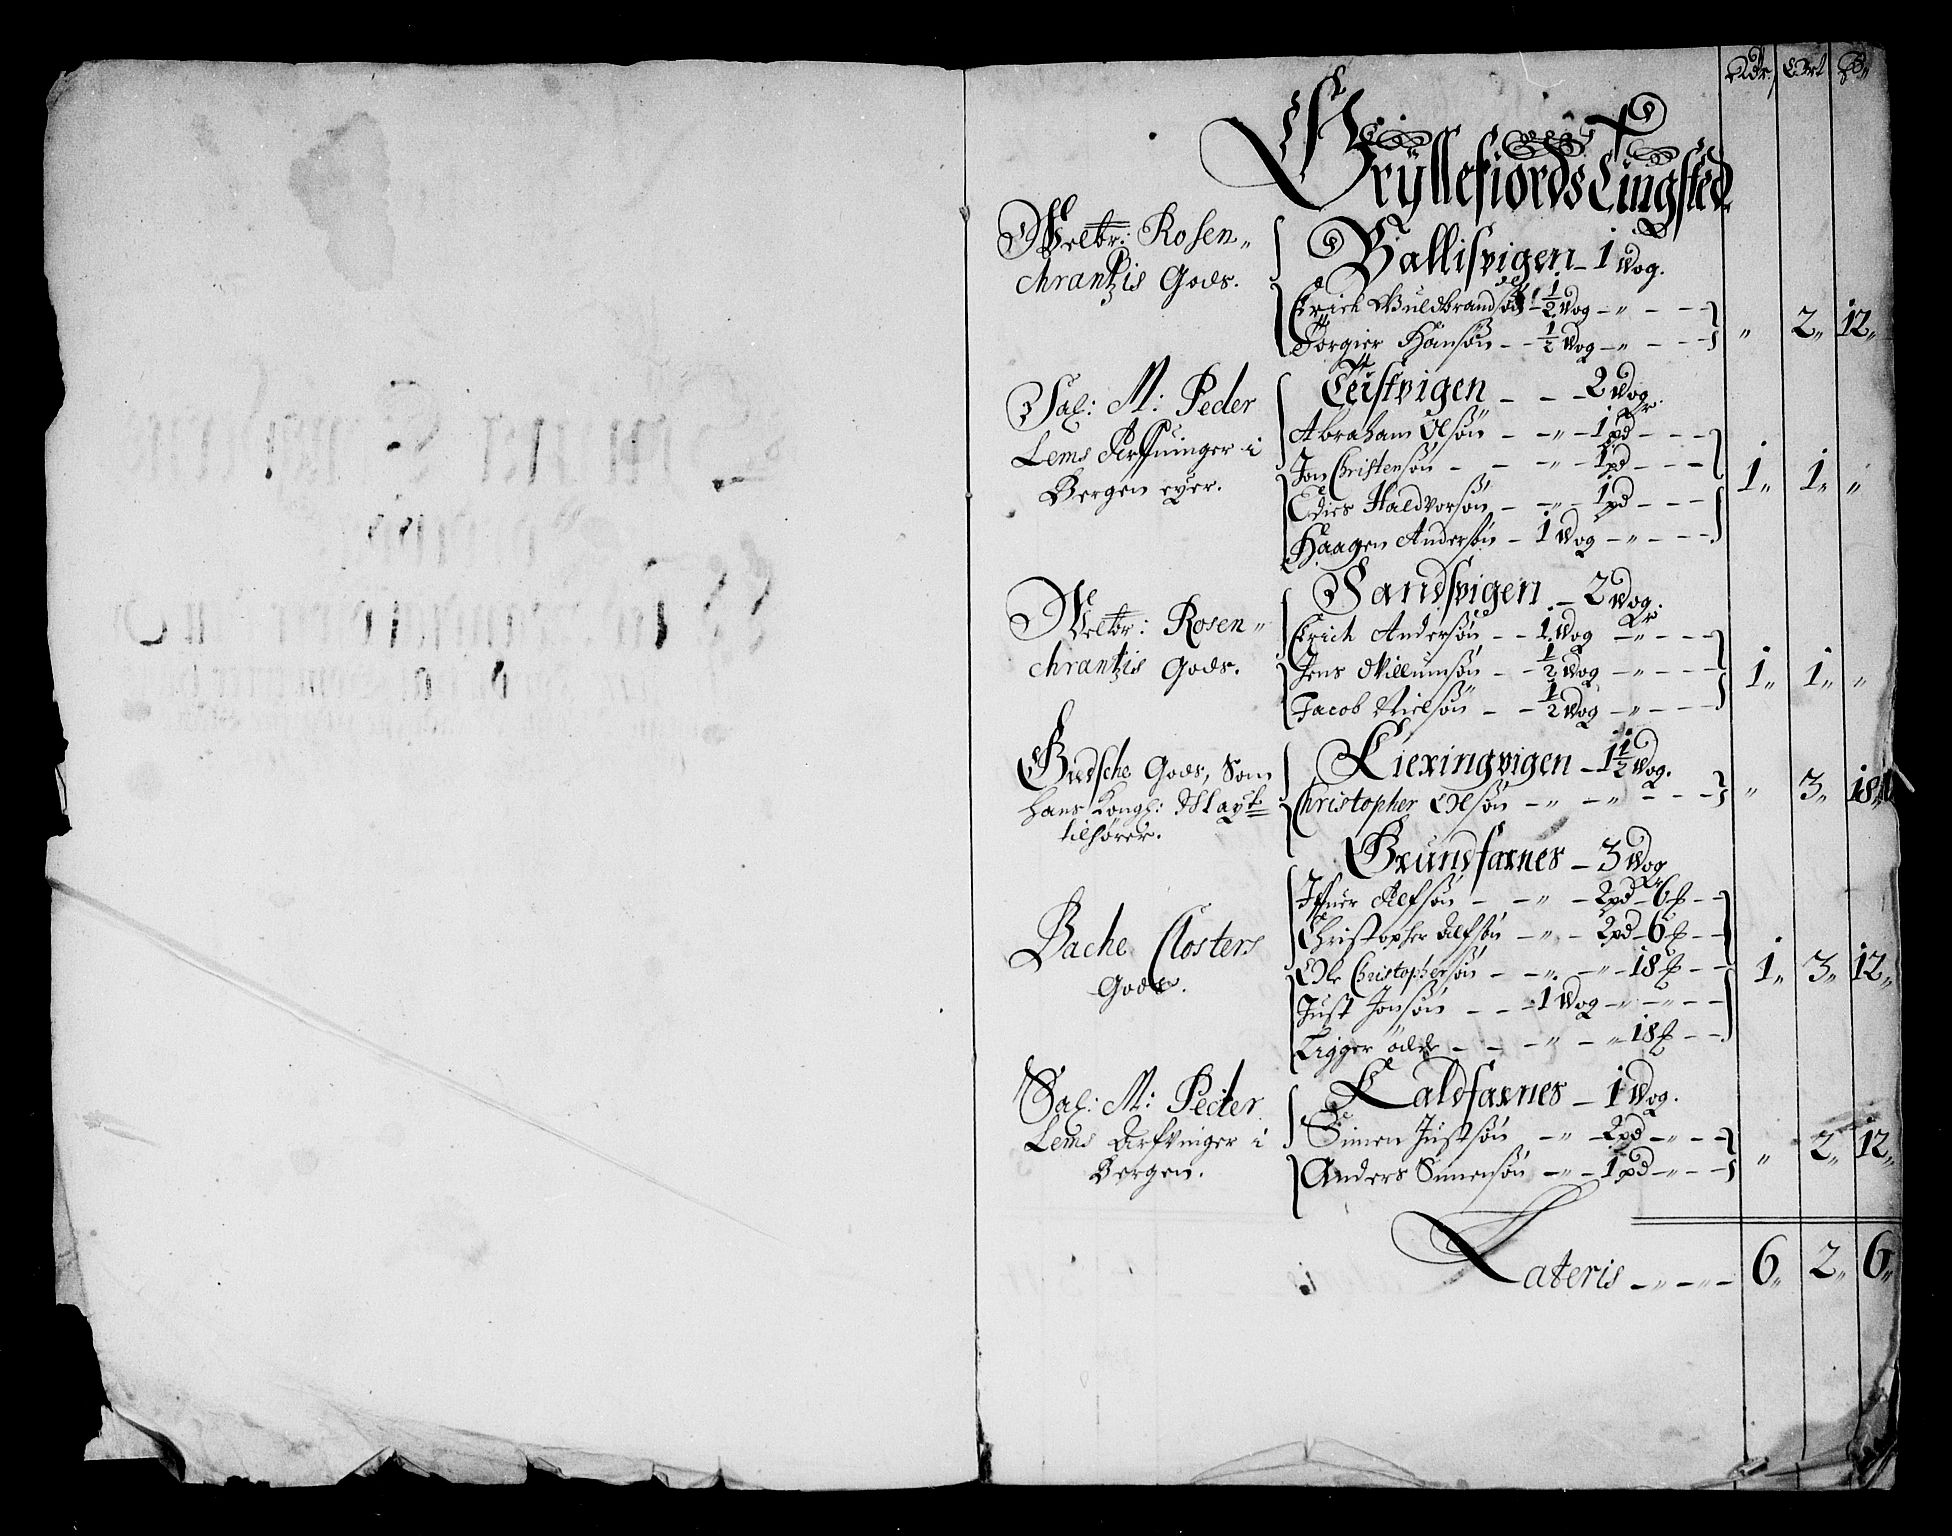 Rdr. Ort ß
Gryllefiords Tingsted.
Welbr: Rosen-
chrantzis Gods.
Ballisvigen - 1 wog.
Erich Guldbrandsøn - ½ wog
Torgier Hansøn - ½ wog „ 2„ 12„
Sal: M: Peder
Lems Arfvinger i
Bergen eyer.
Teistvigen - 2 wog.
Abraham Olsøn - 1 pd
Jon Christensøn - 1 pd
Edies Haldvorsøn - 1 pd
Haagen Andersøn - 1 wog 1„ 1„ „
Welbr: Rosen-
chrantzis Gods.
Sandvigen - 2 wog.
Erich Andersøn - 1 wog
Jens Willumsøn - ½ wog
Jacob Nielsøn - ½ wog 1„ 1„ „
Gods, Som
hans Kongl: Mayt
tilhører.
- 1½ wog.
Christopher Olsøn „ 3„ 18„
Bache Closters
Gods.
Grundfarnes - 3 wog
Ifuer Alfsøn - 2 pd 6
Christopher Alfsøn - 2 pd 6
Ole Christophersøn - 18
Just Jonsøn - 1 wog
Ligger øde - 18 1„ 3„ 12„
Sal: M: Peder
Lems Arfvinger i
Bergen.
Kaldfarnes - 1 wog.
Simen Justsøn - 2 pd
Anders Simensøn - 1 pd „ 2„ 12„
Lateris - 6„ 2„ 6„